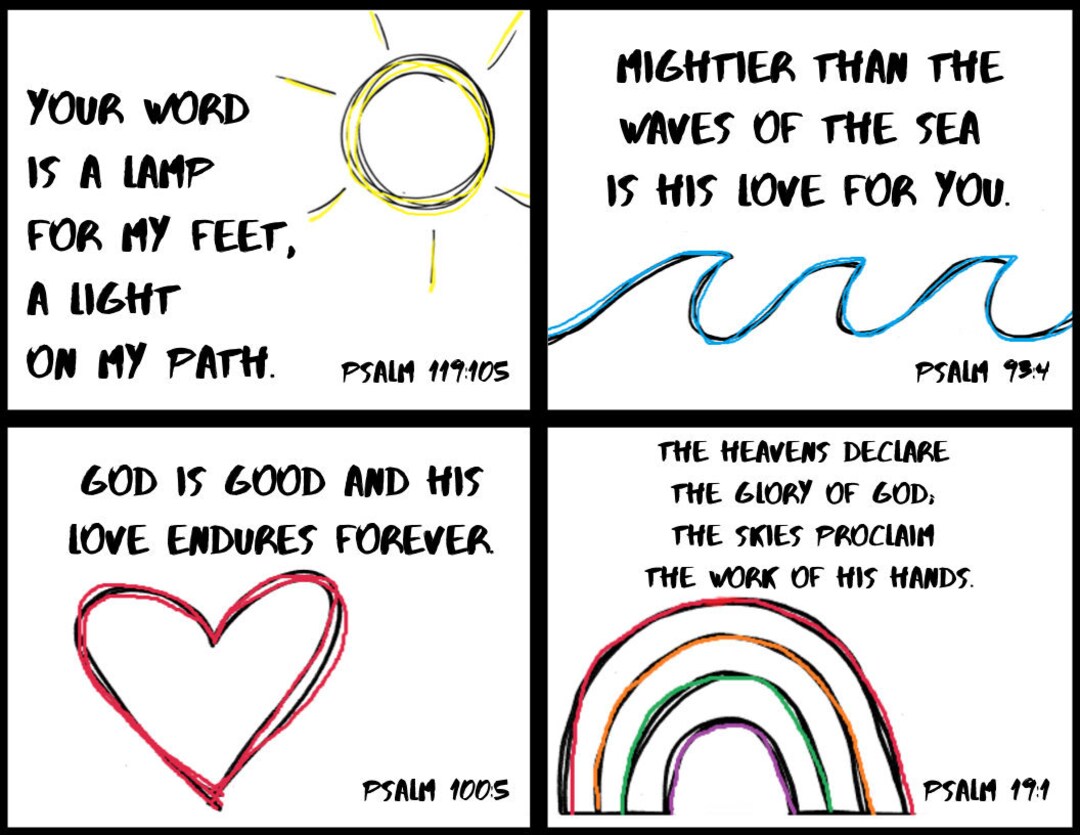 YOUR WORD
IS A LAMP
FOR MY FEET,
A LIGHT
ON MY PATH.
PSALM 119:105
MIGHTIER THAN THE
WAVES OF THE SEA
IS HIS LOVE FOR YOU.
PSALM 93:4
GOD IS GOOD AND HIS
LOVE ENDURES FOREVER.
PSALM 100:5
THE HEAVENS DECLARE
THE GLORY OF GOD;
THE SKIES PROCLAIM
THE WORK OF HIS HANDS.
PSALM 19:1